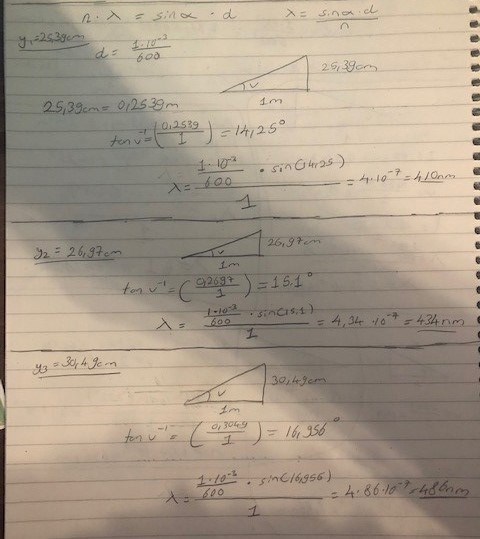 n · λ = sinα · d    λ = sinα·d / n
y₁=25,39cm
d = 1·10⁻³ / 600
25,39cm
v
1m
25,39cm = 0,2539m
tan v⁻¹ = (0,2539 / 1) = 14,25°
λ = (1·10⁻³ / 600 · sin(14,25)) / 1 = 4·10⁻⁷ = 410nm
y₂ = 26,97cm
26,97cm
v
1m
tan v⁻¹ = (0,2697 / 1) = 15.1°
λ = (1·10⁻³ / 600 · sin(15,1)) / 1 = 4,34 · 10⁻⁷ = 434nm
y₃ = 30,49cm
30,49cm
v
1m
tan v⁻¹ = (0,3049 / 1) = 16,956°
λ = (1·10⁻³ / 600 · sin(16,956)) / 1 = 4.86·10⁻⁷ = 486nm